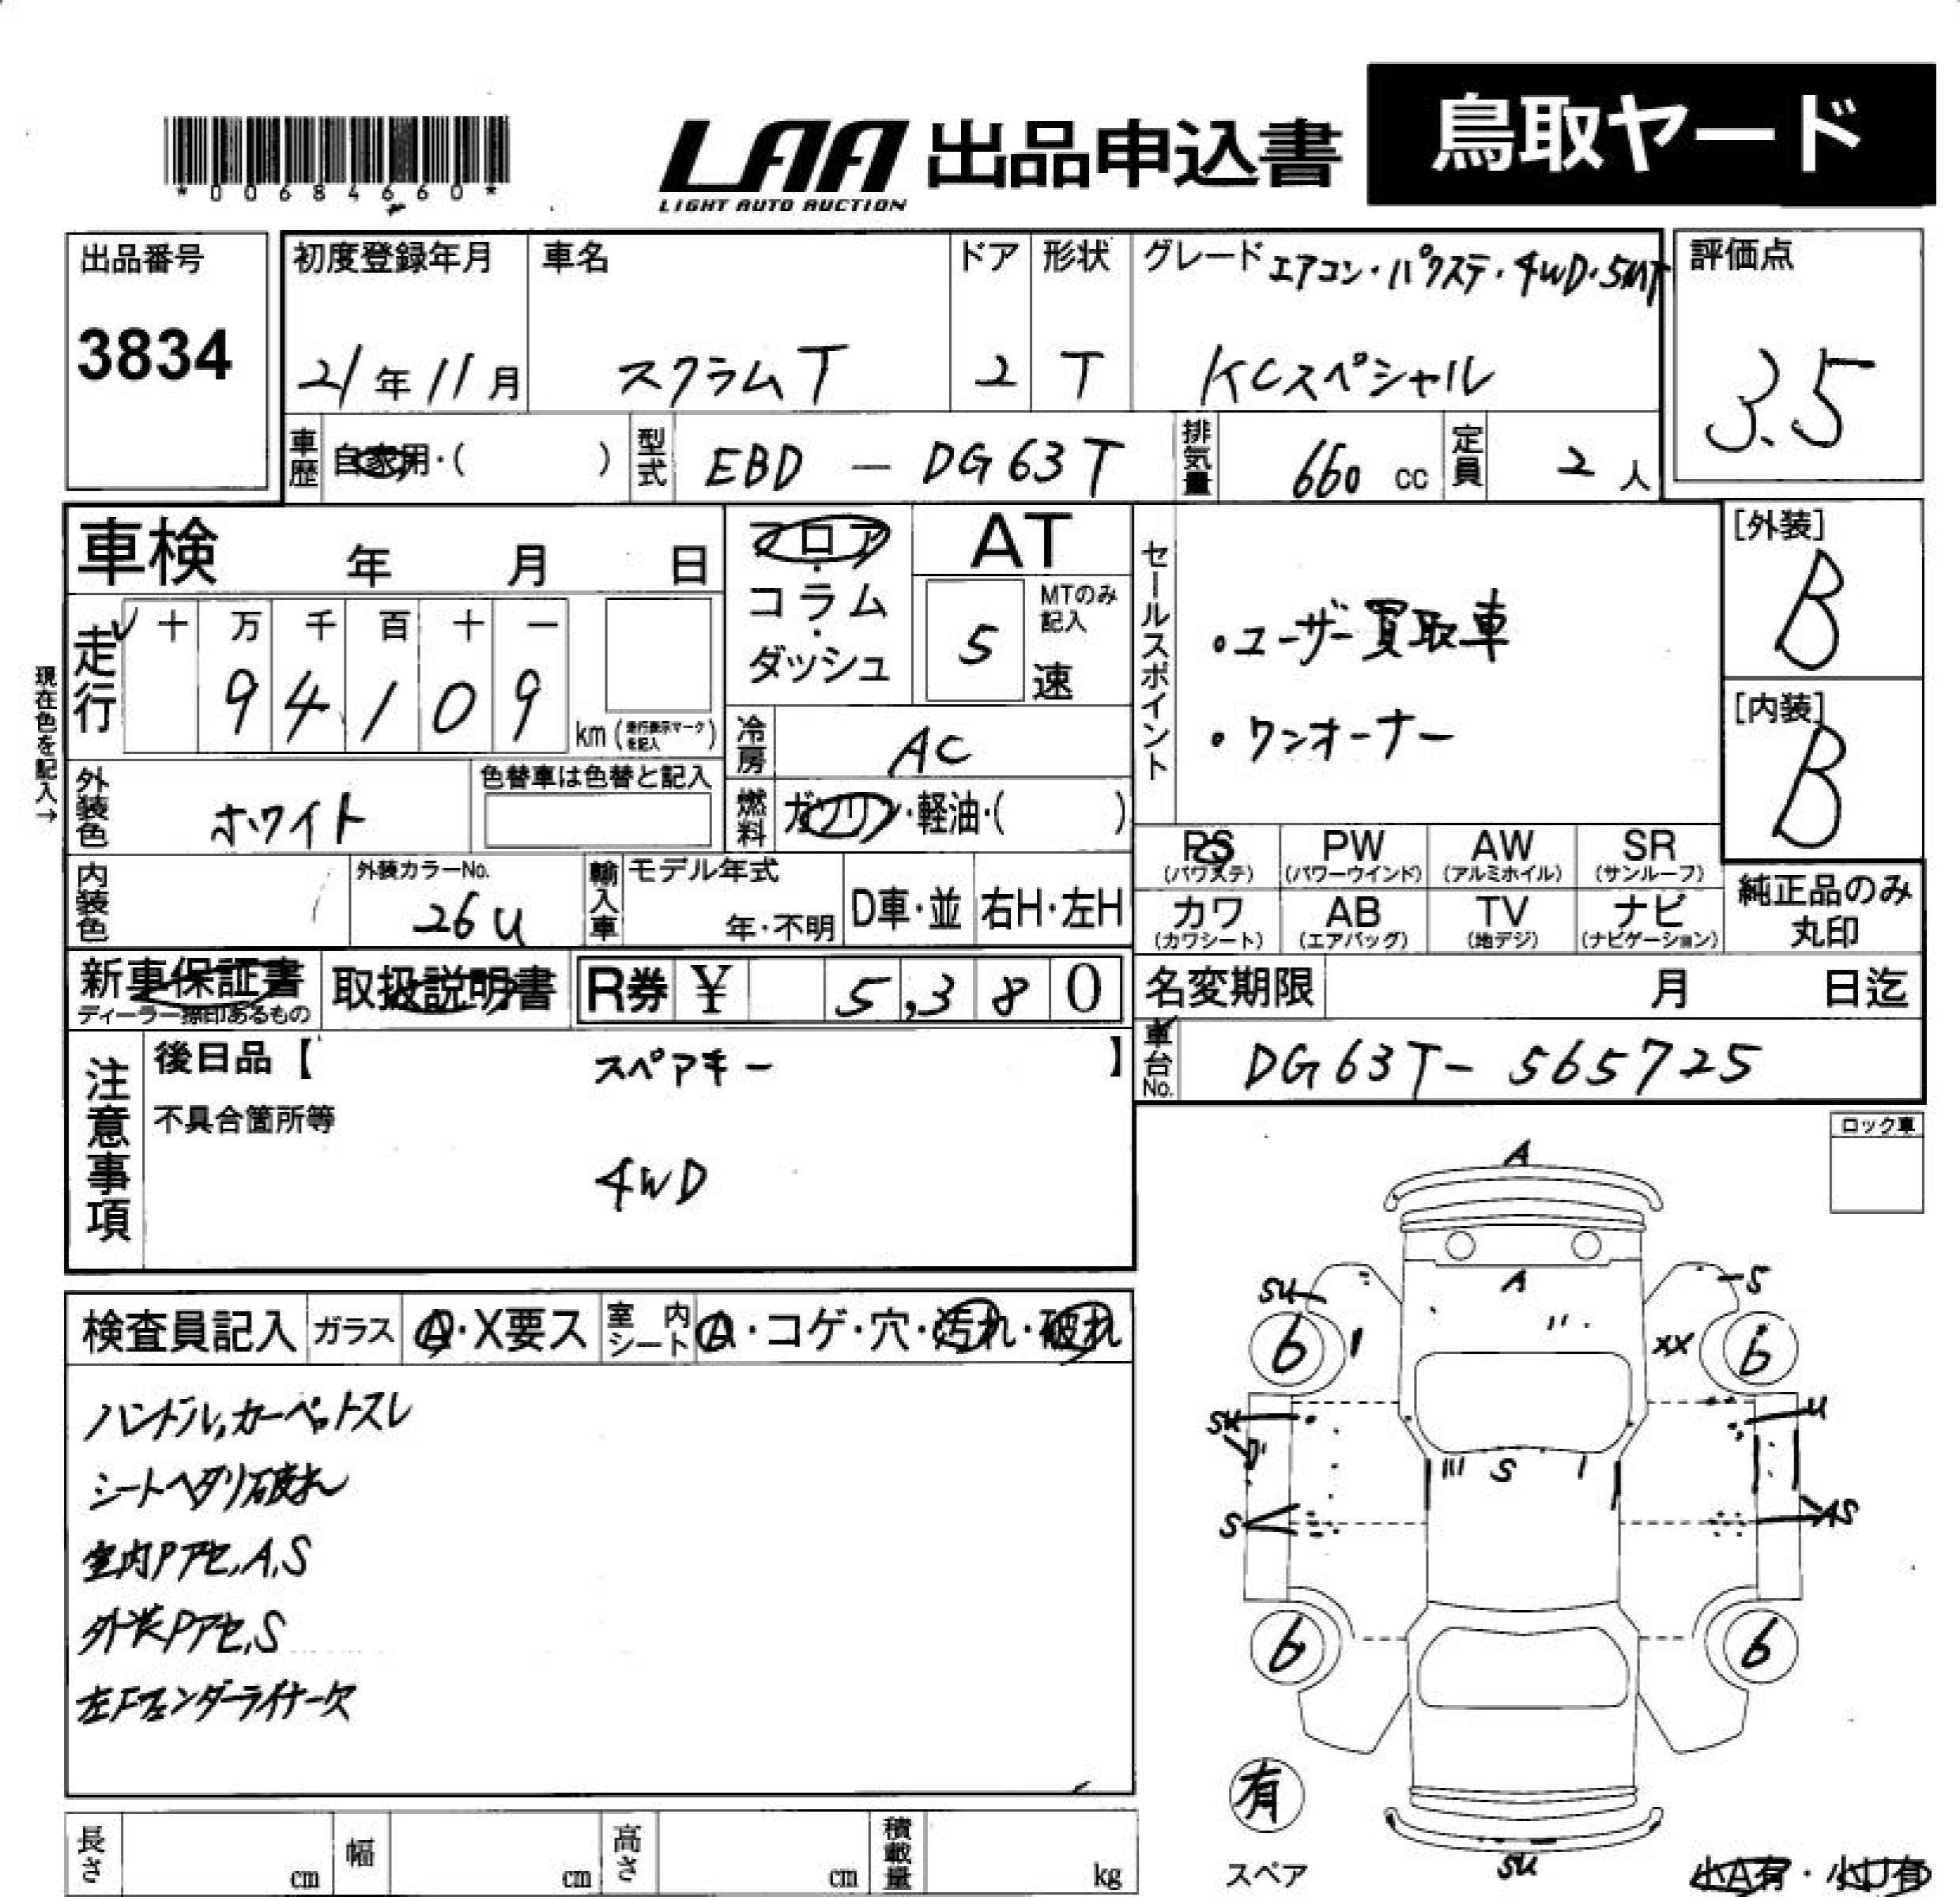 *00684660*
LAA 出品申込書
LIGHT AUTO AUCTION
鳥取ヤード
出品番号
3834
初度登録年月
21年11月
車名
スクラムT
ドア
2
形状
T
グレード エアコン・パワステ・4WD・5MT
KCスペシャル
評価点
3.5
車歴 自家用・( )
型式 EBD - DG63T
排気量 660 cc
定員 2 人
車検 年 月 日
フロア・コラム・ダッシュ
AT
MTのみ記入
5 速
セールスポイント
・ユーザー買取車
・ワンオーナー
[外装]
B
[内装]
B
現在色を記入→
走行 十 万 千 百 十 一
94109
km(走行表示マークを記入)
冷房 AC
燃料 ガソリン・軽油・( )
外装色 ホワイト
色替車は色替と記入
内装色
外装カラーNo.
26U
輸入車
モデル年式
年・不明
D車・並
右H・左H
PS (パワステ)
PW (パワーウインド)
AW (アルミホイル)
SR (サンルーフ)
カワ (カワシート)
AB (エアバッグ)
TV (地デジ)
ナビ (ナビゲーション)
純正品のみ丸印
新車保証書
ディーラー捺印あるもの
取扱説明書
R券 ¥ 5,380
名変期限 月 日迄
車台No. DG63T-565725
注意事項
後日品【 スペアキー 】
不具合箇所等
4WD
ロック車
検査員記入
ガラス A・X要ス
室内シート A・コゲ・穴・汚れ・破れ
ハンドル,カーペットスレ
シートヘタリ破れ
室内Pアセ,A,S
外装Pアセ,S
左Fフェンダーライナー欠
A
A
SU
S
6
6
XX
SU
U
S
S
AS
6
6
有
スペア
SU
小A有・小U有
長さ cm
幅 cm
高さ cm
積載量 kg